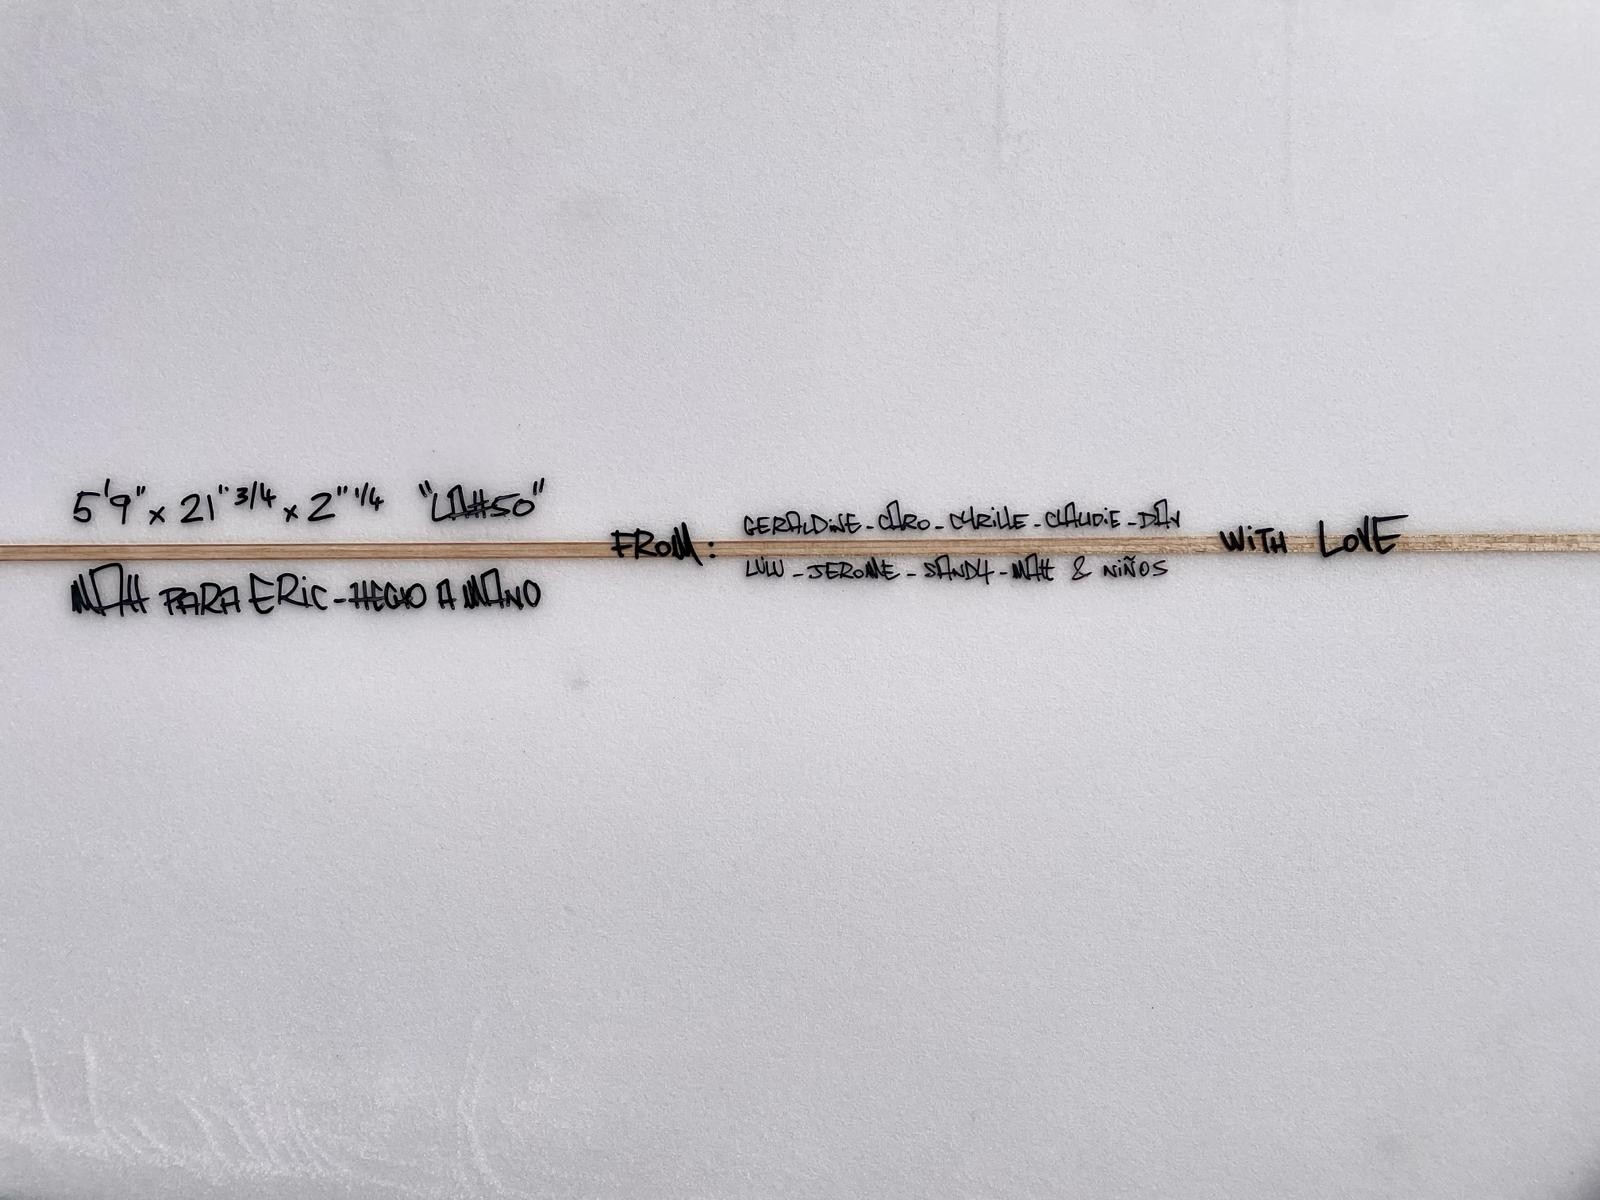 5'9" x 21" 3/4 x 2" 1/4 "LA#50"
MATT PARA ERIC - HECHO A MANO
FROM :
GERALDINE - CARO - CYRILLE - CLAUDIE - DAV
LULU - JEROME - SANDY - MATT & NIÑOS
WITH LOVE